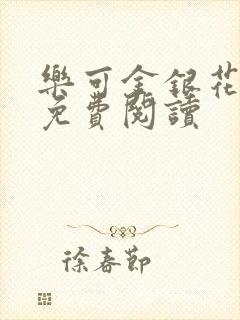 樂可金銀花
免費閱讀
徐春節